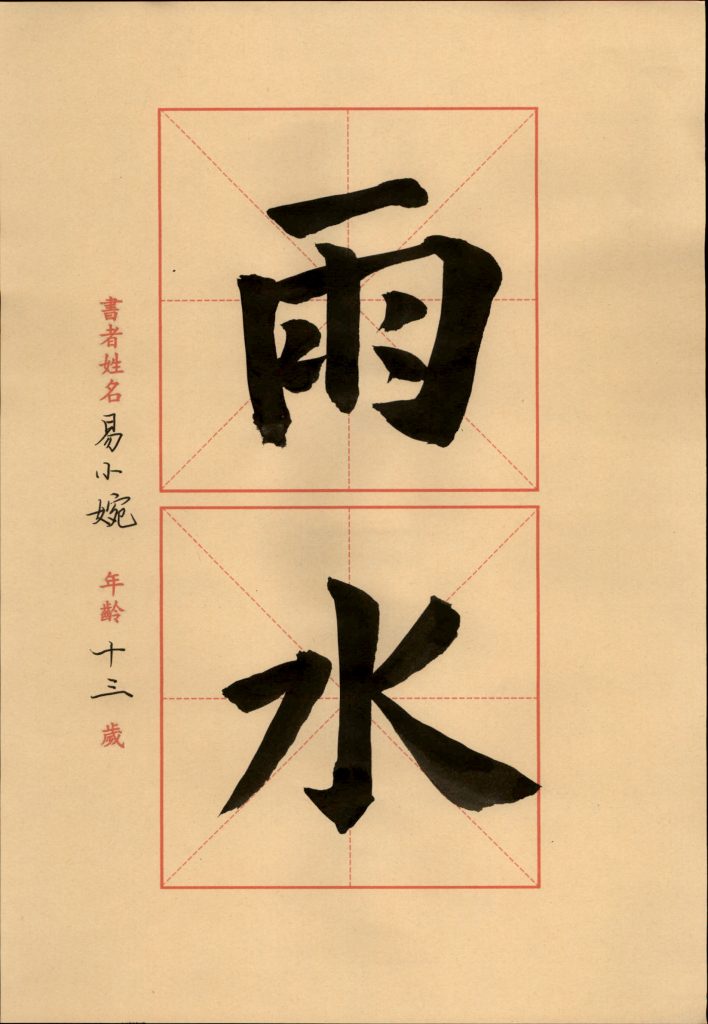 雨水
書者姓名 易小婉 年齡 十三 歲